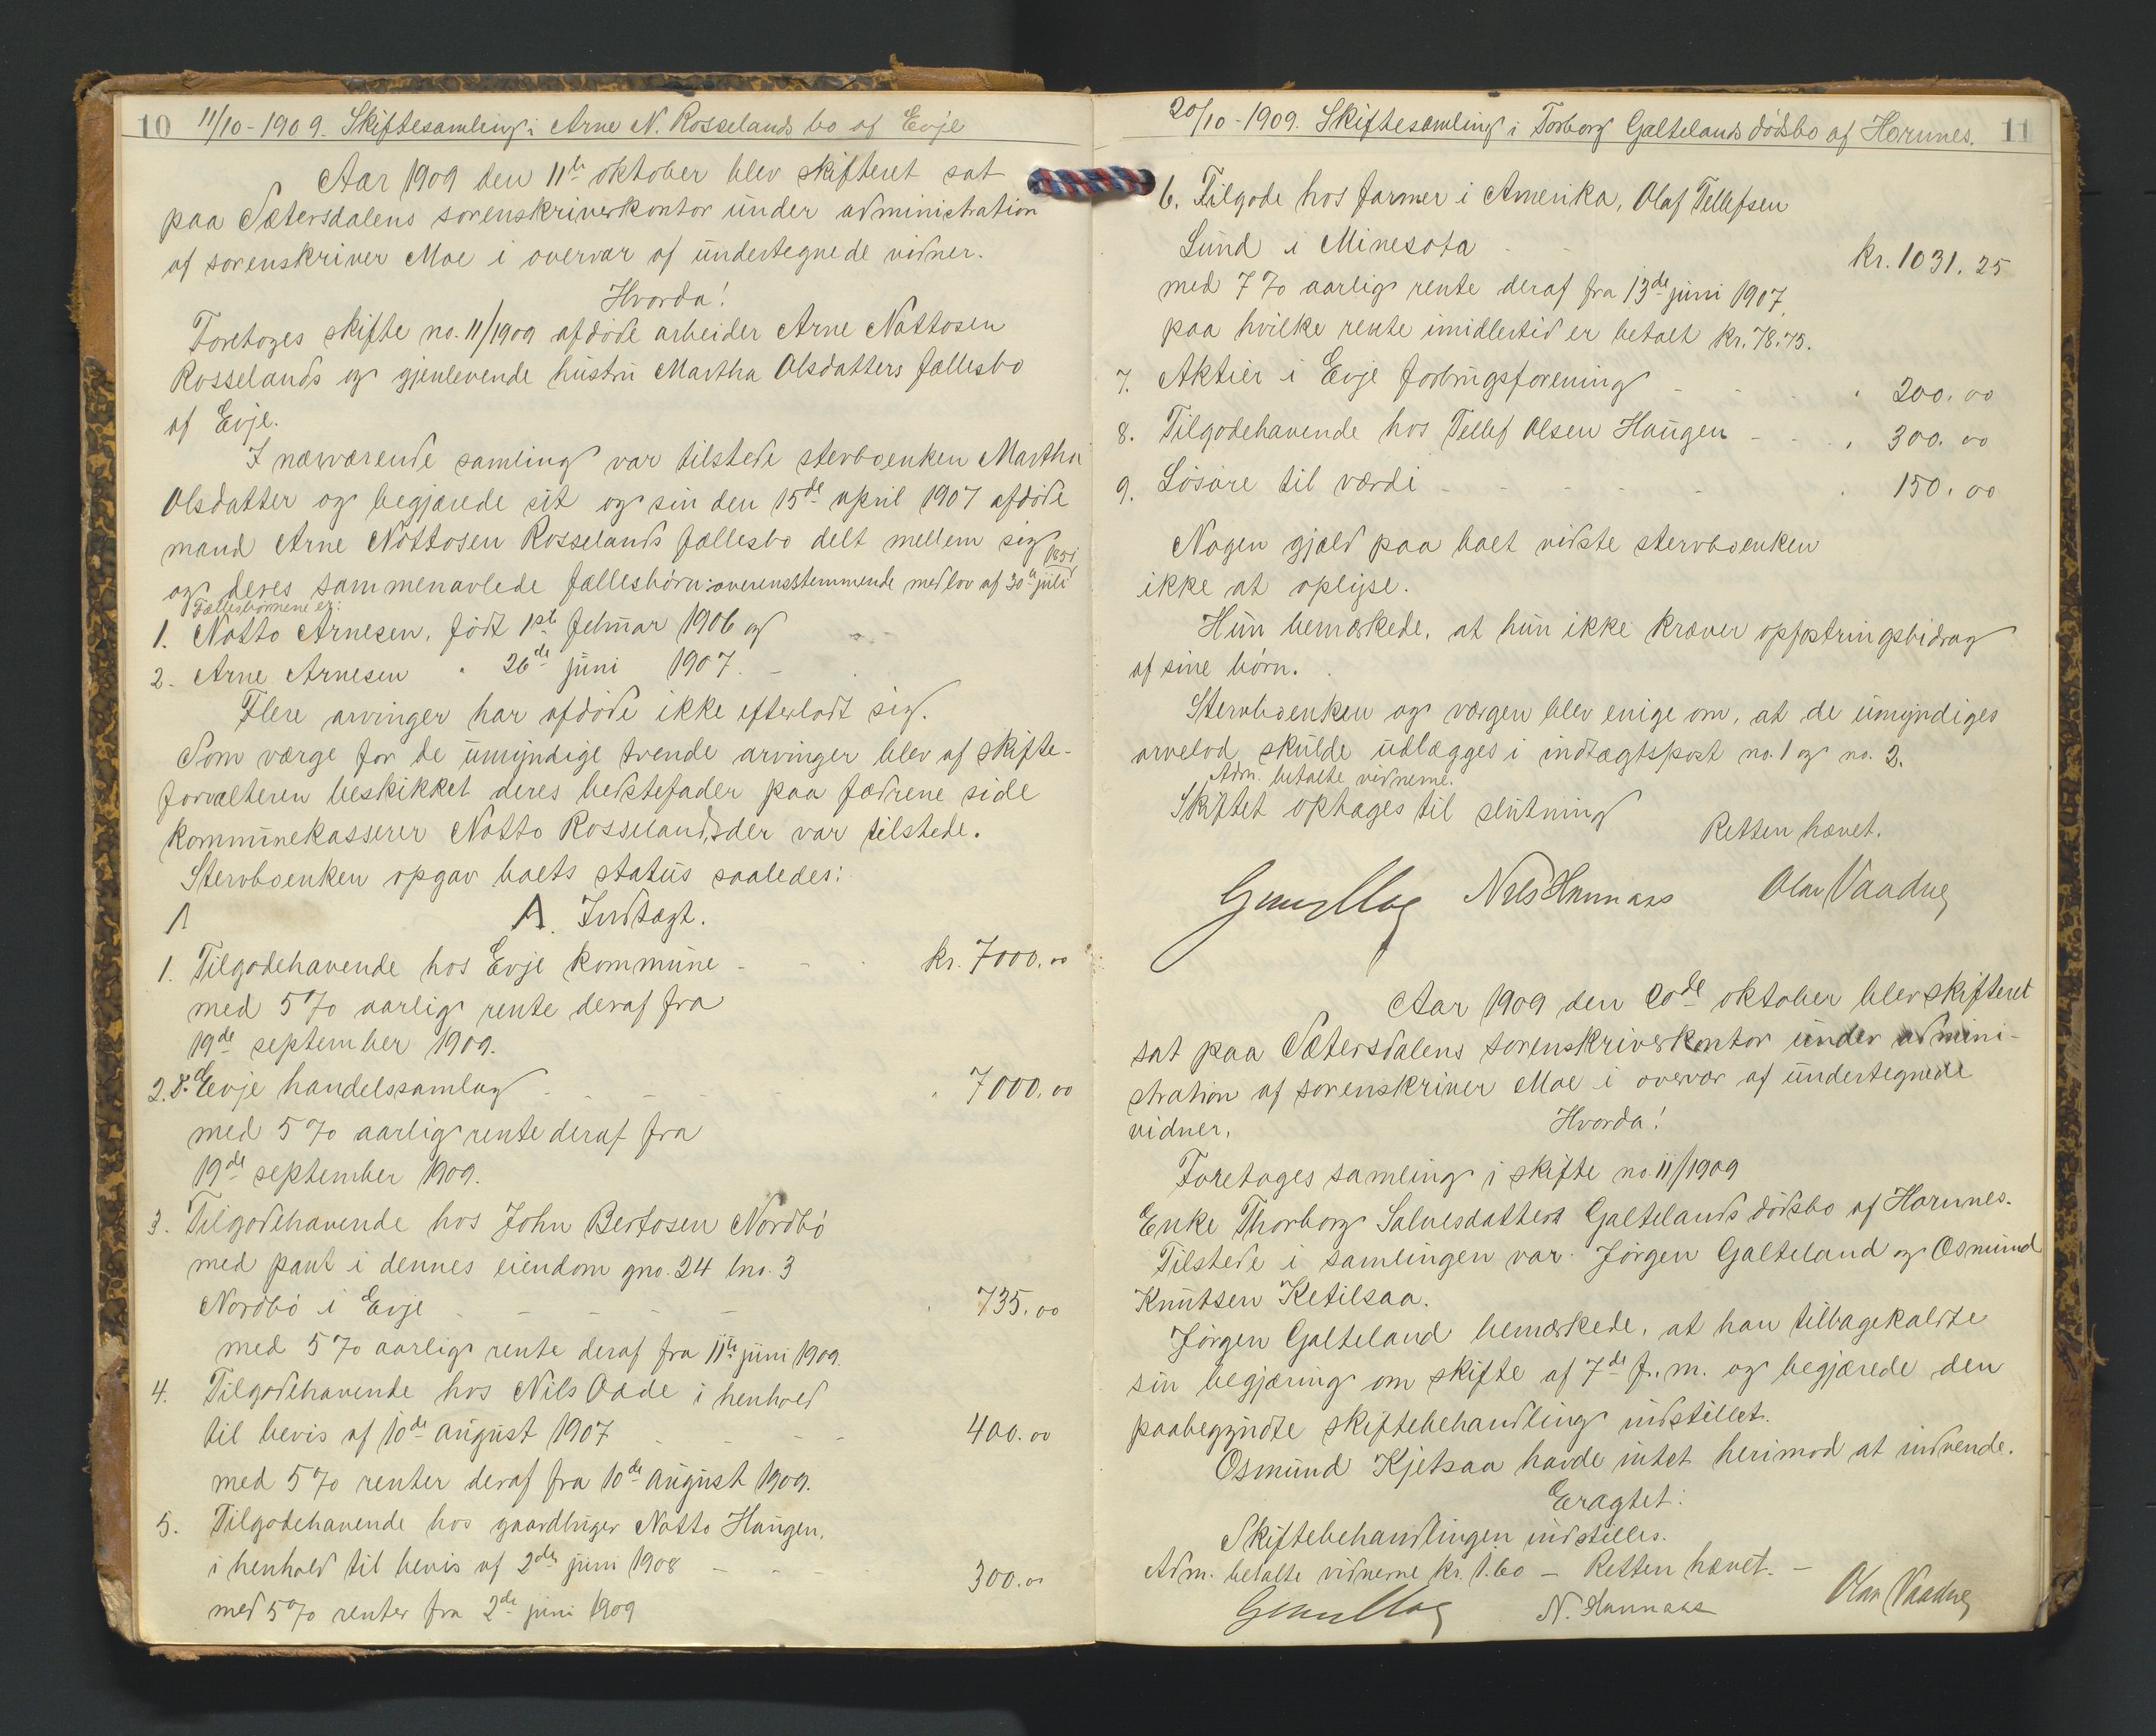 10 11/10-1909. Skiftesamling i Arne N. Rosselands bo af Evje
Aar 1909 den 11te oktober blev skifteret sat
paa Sætersdalens sorenskriverkontor under administration
af sorenskriver Moe i overvær af undertegnede vidner.
Hvorda!
Foretoges skifte no. 11/1909 afdøde arbeider Arne Nottosen
Rosselands og gjenlevende hustru Martha Olsdatters fællesbo
af Evje.
I nærværende samling var tilstede stervboenken Martha
Olsdatter og begjærede sit og sin den 15de april 1907 afdøde
mand Arne Nottosen Rosselands fællesbo delt mellem sig
og deres sammenavlede fællesbørn overensstemmende med lov af 30te juli 1851
Fællesbørnene er:
1. Notto Arnesen, født 1ste februar 1906 og
2. Arne Arnesen " 26de juni 1907. -
Flere arvinger har afdøde ikke efterladt sig.
Som værge for de umyndige tvende arvinger blev af skifte-
forvalteren beskikket deres bedstefader paa fædrene side
kommunekasserer Notto Rosseland, der var tilstede.
Stervboenken opgav boets status saaledes:
A. Indtægt.
1. Tilgodehavende hos Evje kommune - - kr. 7000.00
med 5 % aarlig rente deraf fra
19de september 1909.
2. Do Evje handelssamlag - - - " 7000.00
med 5 % aarlig rente deraf fra
19de september 1909.
3. Tilgodehavende hos John Bertosen Nordbø
med pant i dennes eiendom gno. 24 bno. 3
Nordbø i Evje - - - - " 735.00
med 5 % aarlig rente deraf fra 11te juni 1909.
4. Tilgodehavende hos Nils Odde i henhold
til bevis af 10de august 1907 - - - 400.00
med 5 % renter deraf fra 10de august 1909.
5. Tilgodehavende hos gaardbruger Notto Haugen,
i henhold til bevis af 2den juni 1908 - - - 300.00
med 5 % renter fra 2de juni 1909
20/10-1909. Skiftesamling i Torborg Galtelands dødsbo af Hornnes. 11
6. Tilgode hos farmer i Amerika, Olaf Tellefsen
Lund i Minesota - - kr. 1031.25
med 7 % aarlig rente deraf fra 13de juni 1907,
paa hvilke rente imidlertid er betalt kr. 78.75.
7. Aktier i Evje forbrugsforening - - - " 200.00
8. Tilgodehavende hos Tellef Olsen Haugen - - " 300.00
9. Løsøre til værdi - - - - - " 150.00
Nogen gjæld paa boet vidste stervboenken
ikke at oplyse.
Hun bemærkede, at hun ikke kræver opfostringsbidrag
af sine børn.
Stervboenken og værgen blev enige om, at de umyndiges
arvelod skulde udlægges i indtægtspost no. 1 og no. 2.
Adm. betalte vidnerne.
Skiftet optages til slutning
Retten hævet.
Nils Hannaas Olav Vaadne
Aar 1909 den 20de oktober blev skifteret
sat paa Sætersdalens sorenskriverkontor under admini-
stration af sorenskriver Moe i overvær af undertegnede
vidner.
Hvorda!
Foretoges samling i skifte no. 11/1909
Enke Thorborg Salvesdatters Galtelands dødsbo af Hornnes.
Tilstede i samlingen var Jørgen Galteland og Osmund
Knutsen Ketilsaa.
Jørgen Galteland bemærkede, at han tilbagekaldte
sin begjæring om skifte af 7de f. m. og begjærede den
paabegyndte skiftebehandling indstillet.
Osmund Kjetsaa havde intet herimod at indvende.
Eragtet:
Skiftebehandlingen indstilles.
Adm. betalte vidnerne kr. 1.60 - Retten hævet. -
N. Hannaas Olav Vaadne